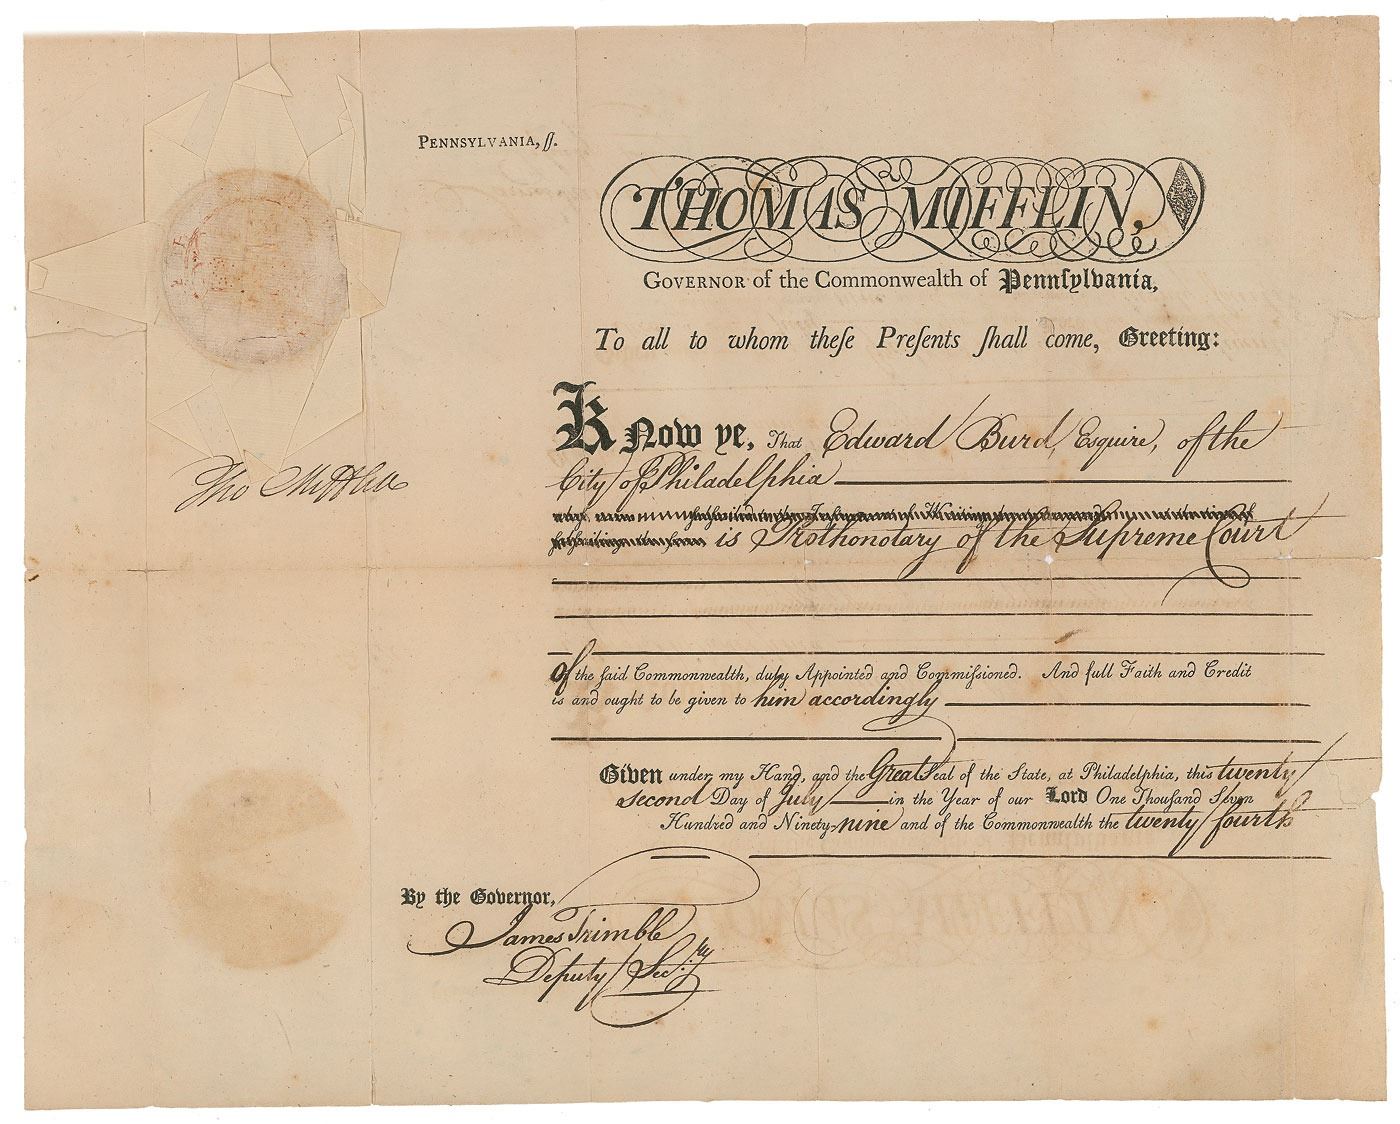 PENNSYLVANIA, ſſ.
THOMAS MIFFLIN,
GOVERNOR of the Commonwealth of Pennſylvania,
To all to whom theſe Preſents ſhall come, Greeting:
Know ye, That Edward Burd, Esquire, of the
City of Philadelphia
Tho Mifflin
is Prothonotary of the Supreme Court
of the ſaid Commonwealth, duly Appointed and Commiſsioned. And full Faith and Credit
is and ought to be given to him accordingly
Given under my Hand, and the Great Seal of the State, at Philadelphia, this twenty
second Day of July in the Year of our Lord One Thouſand Seven
Hundred and Ninety-nine and of the Commonwealth the twenty fourth
By the Governor,
James Trimble
Deputy Sec:ry